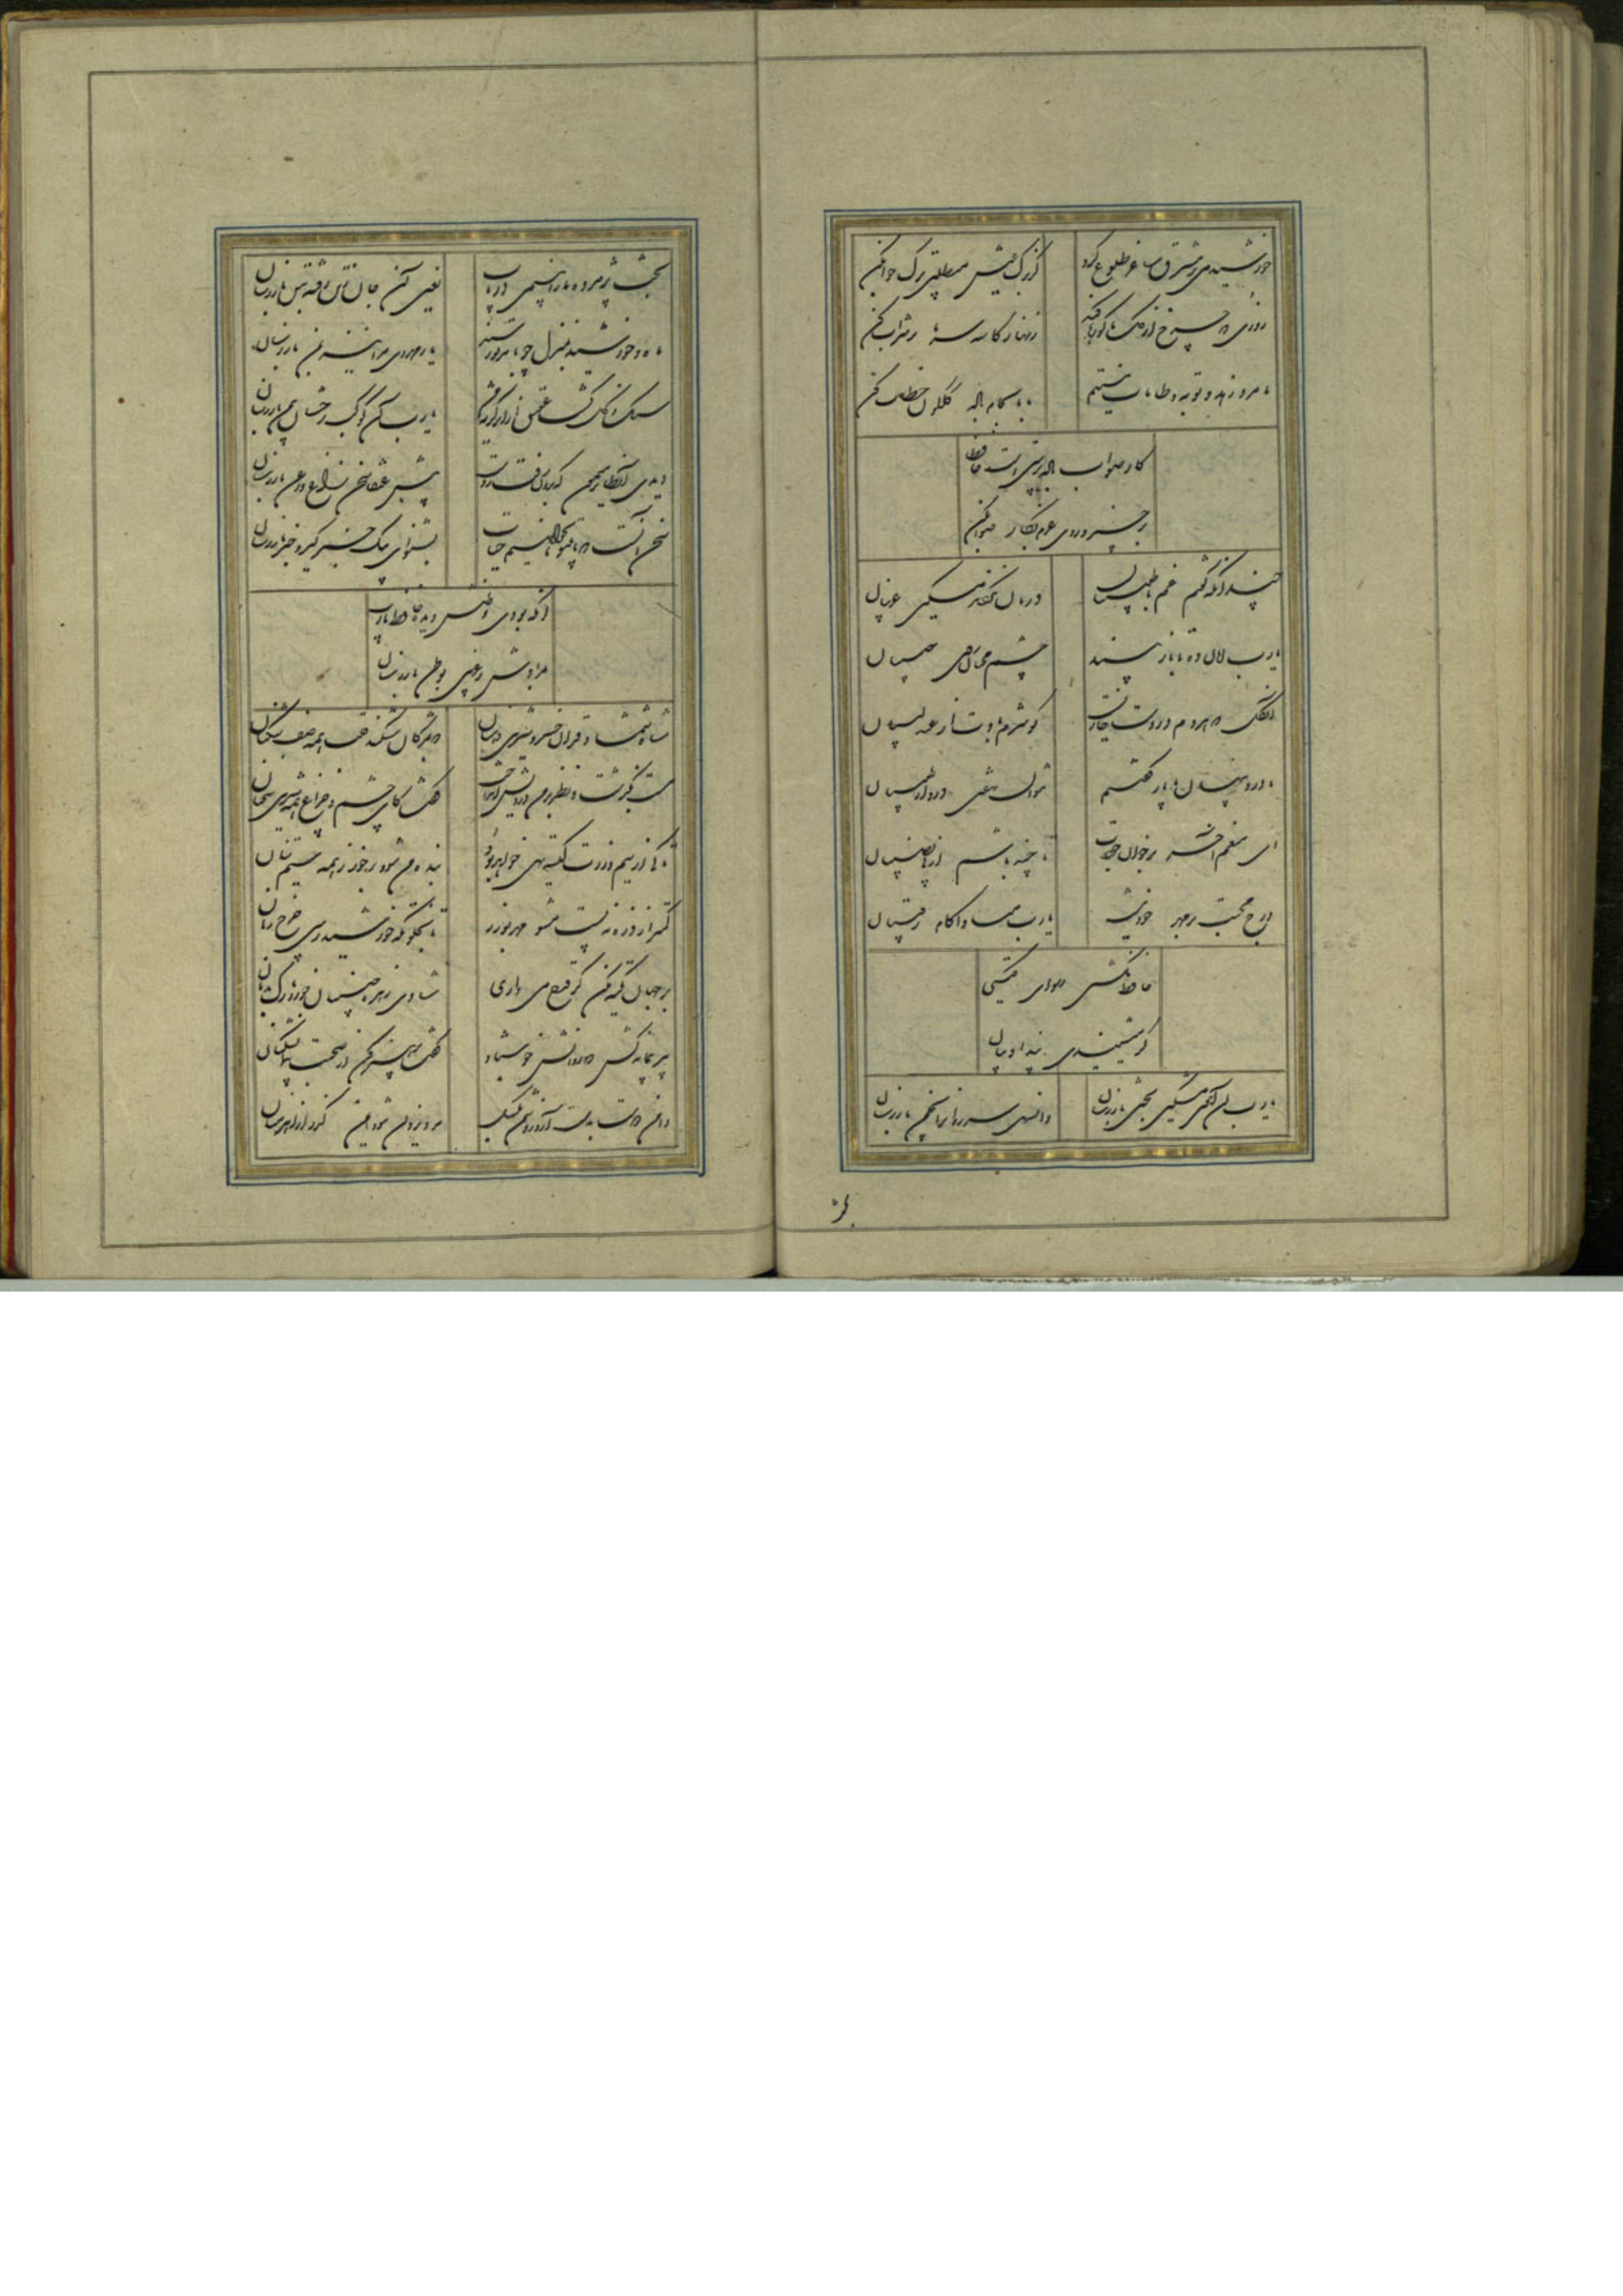 خورشید می ز مشرق ساغر طلوع کرد
گر برگ عیش میطلبی ترک خواب کن
روزی که چرخ از گل ما کوزها کند
زنهار کاسه سر ما پر شراب کن
ما مرد زهد و توبه و طامات نیستیم
با ما بجام باده گلگون خطاب کن
کار صواب باده پرستی است حافظا
برخیز و روی عزم بکار صواب کن
چندانکه گفتم غم با طبیبان
درمان نکردند مسکین غریبان
یا رب امان ده تا باز بیند
چشم محبان روی حبیبان
آن گل که هر دم در دست خاریست
گو شرم بادت از عندلیبان
ما درد پنهان با یار گفتیم
نتوان نهفتن درد از طبیبان
ای منعم آخر بر خوان جودت
تا چند باشیم از بی نصیبان
درج محبت بر مهر خود نیست
یا رب مبادا کام رقیبان
حافظ نگشتی رسوای گیتی
گر میشنیدی پند ادیبان
یا رب آن آهوی مشکین بختن بازرسان
وان سهی سرو روانرا بچمن بازرسان
بخت پژمرده ما را بنسیمی دریاب
یعنی آن جان ز تن رفته بتن بازرسان
ماه و خورشید بمنزل چو بامر تو رسند
یار مهروی مرا نیز بمن بازرسان
سنگ و گل گشت عقیق از اثر گریه من
یا رب آن کوکب رخشان بیمن بازرسان
پیش عنقا سخن زاغ و زغن بازرسان
سخن اینست که ما بی تو نخواهیم حیات
بشنو ای پیک خبر گیر و خبر بازرسان
آنکه بودی وطنش دیده حافظ یا رب
بمرادش ز غریبی بوطن بازرسان
شاه شمشاد قدان خسرو شیرین دهنان
که بمژگان شکند قلب همه صف شکنان
مست بگذشت و نظر بر من درویش انداخت
گفت کای چشم و چراغ همه شیرین سخنان
تا کی از سیم و زرت کیسه تهی خواهد بود
بنده من شو و برخور ز همه سیم تنان
کمتر از ذره نه پست مشو مهر بورز
تا بخلوتگه خورشید رسی چرخ زنان
بر جهان تکیه مکن گر قدحی می داری
شادی زهره جبینان خور و نازک بدنان
پیر پیمانه کش ما که روانش خوش باد
گفت پرهیز کن از صحبت پیمان شکنان
دامن دوست بدست آر و ز دشمن بگسل
مرد یزدان شو و ایمن گذر از اهرمنان
بخت